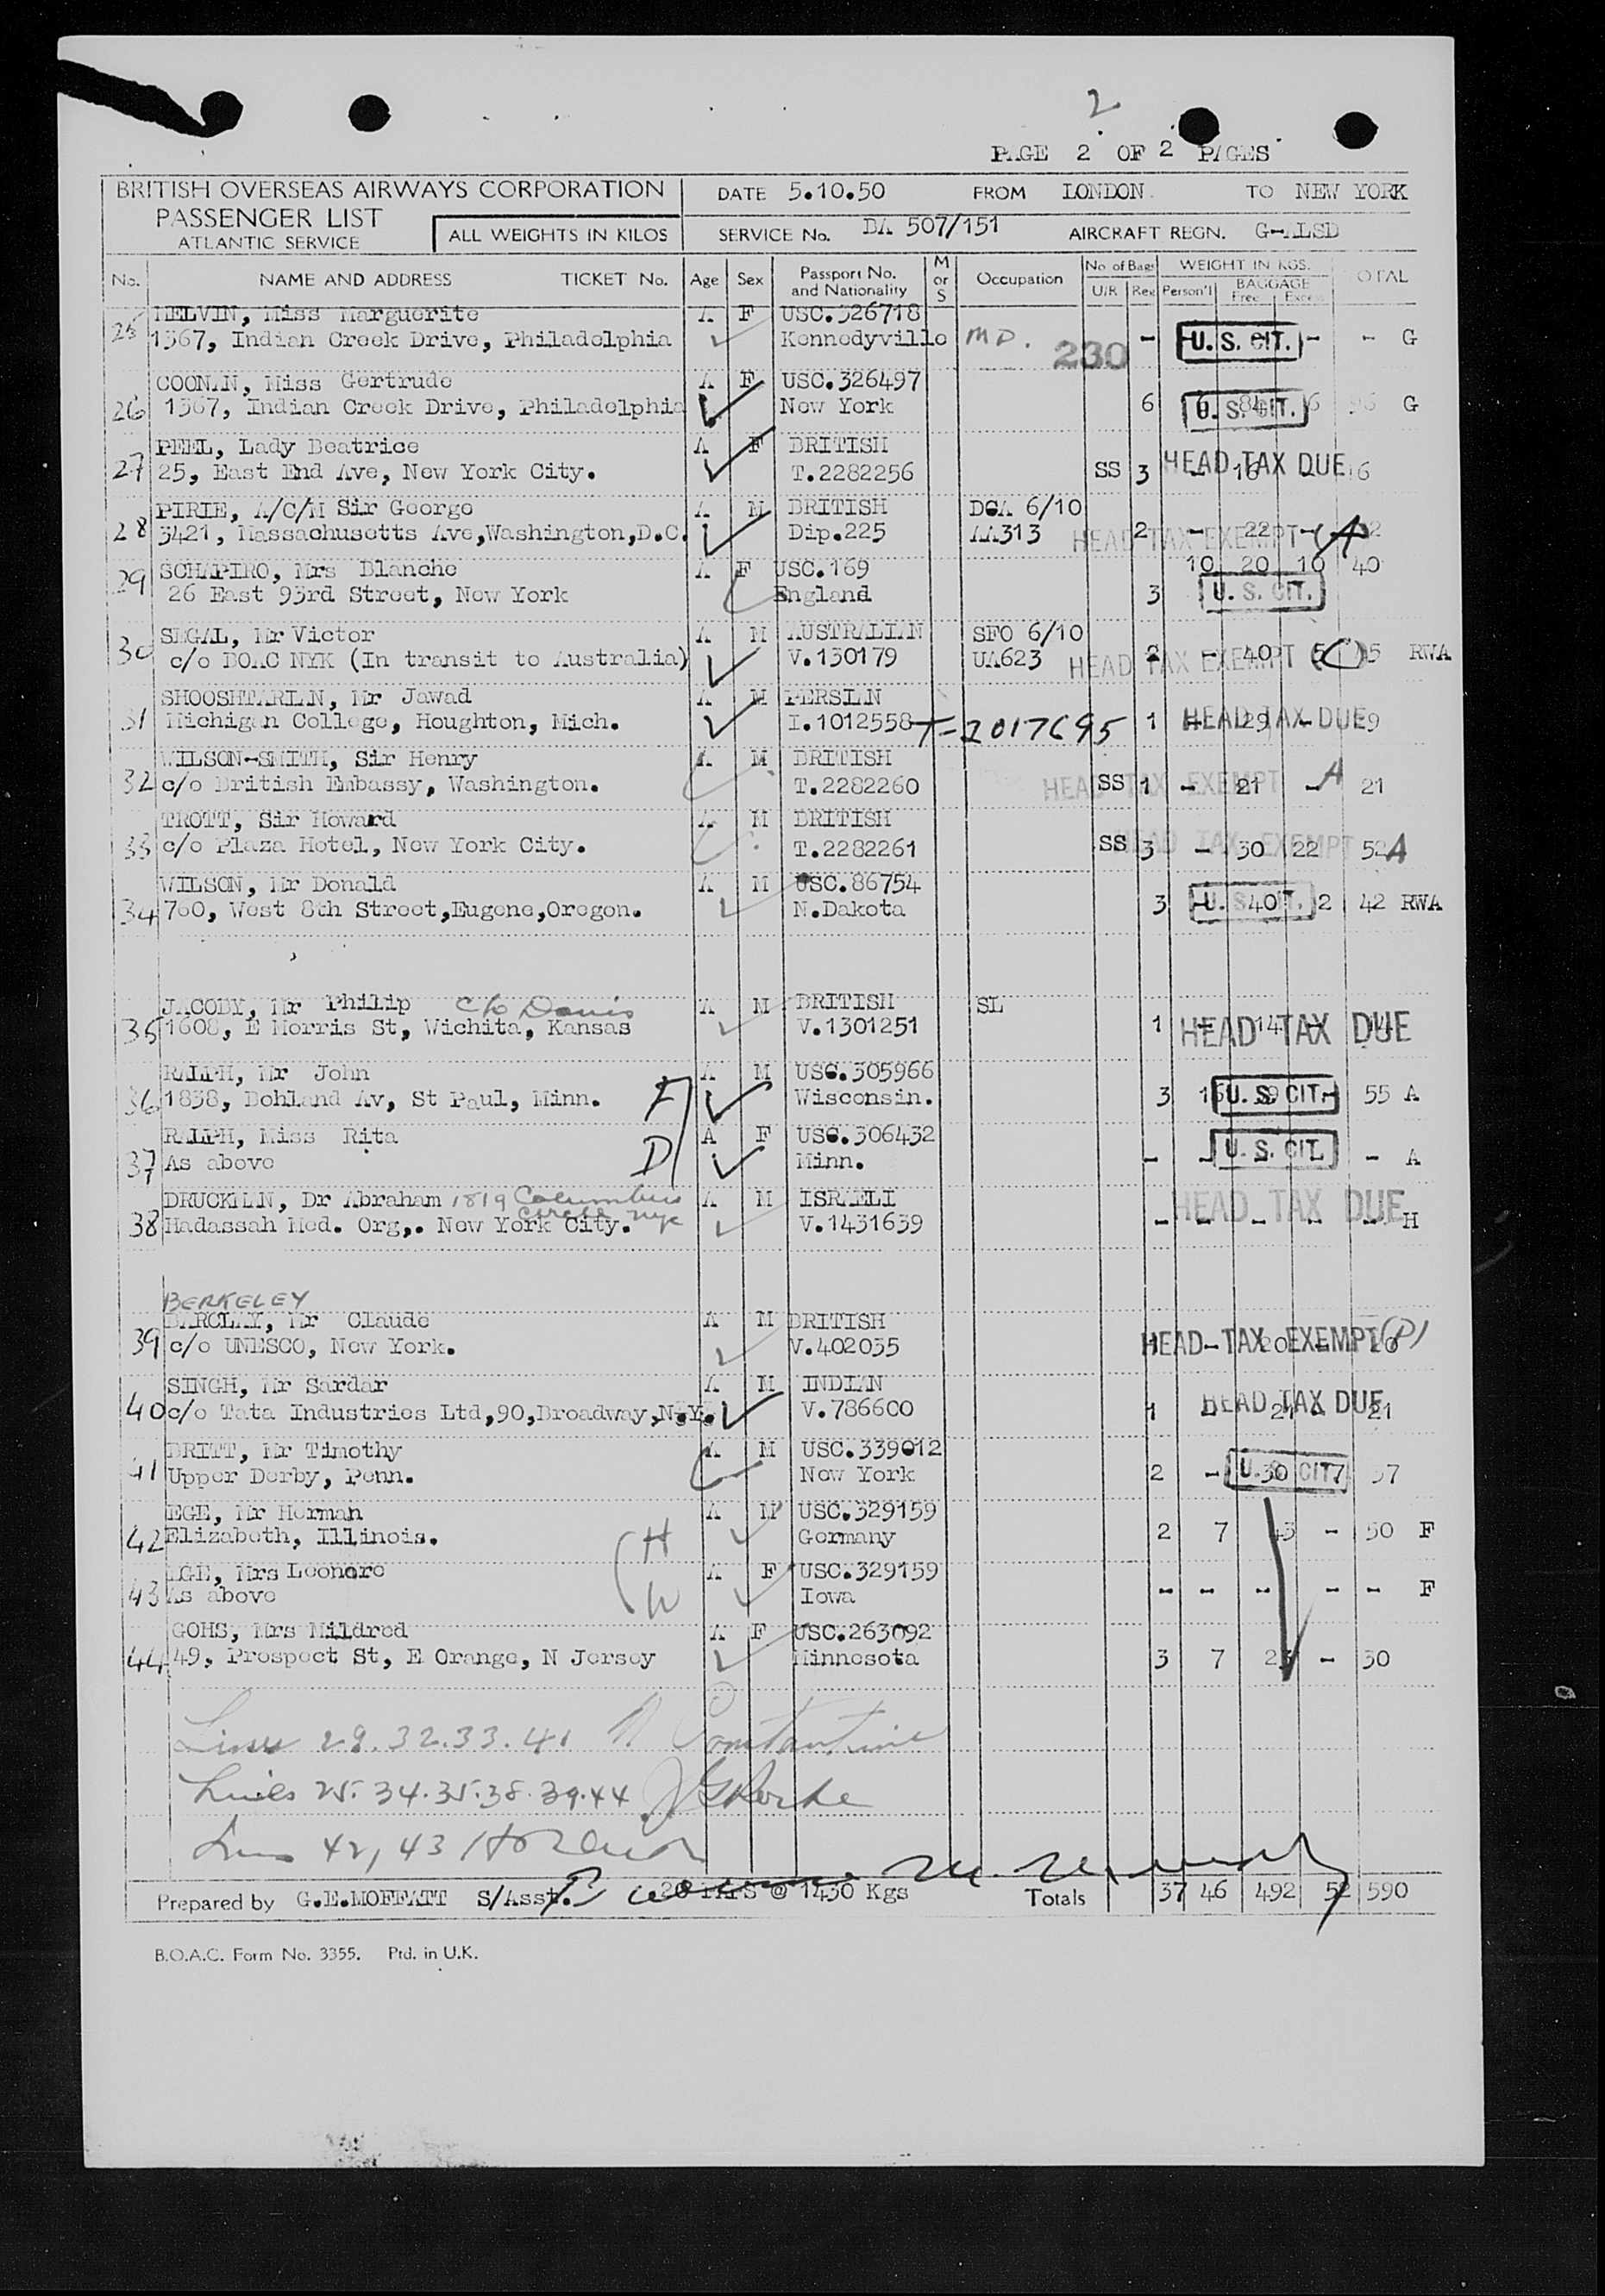 2
PAGE 2 OF 2 PAGES
BRITISH OVERSEAS AIRWAYS CORPORATION
PASSENGER LIST
ATLANTIC SERVICE
ALL WEIGHTS IN KILOS
DATE 5.10.50 FROM LONDON. TO NEW YORK
SERVICE No. BA 507/151 AIRCRAFT REGN. G-ALSD
No. NAME AND ADDRESS TICKET No. Age Sex Passport No. and Nationality M or S Occupation No of Bags U/R Reg WEIGHT IN KGS. Person'l BAGGAGE Free Excess TOTAL
MELVIN, Miss Marguerite A F USC.326718
25 1367, Indian Creek Drive, Philadelphia Kennedyville MD. 230 - U.S. CIT. - - G
COONAN, Miss Gertrude A F USC.326497
26 1367, Indian Creek Drive, Philadelphia New York 6 U.S. CIT. 84 6 96 G
PEEL, Lady Beatrice A F BRITISH
27 25, East End Ave, New York City. T.2282256 SS 3 HEAD TAX DUE - 16 - 16
PIRIE, A/C/M Sir George A M BRITISH DCA 6/10
28 3421, Massachusetts Ave,Washington,D.C. Dip.225 AA313 2 HEAD TAX EXEMPT - 22 - A 22
SCHAPIRO, Mrs Blanche A F USC.169 10 20 10 40
29 26 East 93rd Street, New York England 3 U.S. CIT.
SEGAL, Mr Victor A M AUSTRALIAN SFO 6/10
30 c/o BOAC NYK (In transit to Australia) V.130179 UA623 HEAD TAX EXEMPT (C) 2 - 40 5 45 RWA
SHOOSHTARIAN, Mr Jawad A M PERSIAN
31 Michigan College, Houghton, Mich. I.1012558 T-2017695 1 HEAD TAX DUE - 29 - 29
WILSON-SMITH, Sir Henry A M BRITISH
32 c/o British Embassy, Washington. T.2282260 HEAD TAX EXEMPT A SS 1 - 21 - 21
TROTT, Sir Howard A M BRITISH
33 c/o Plaza Hotel, New York City. T.2282261 SS 3 HEAD TAX EXEMPT A - 30 22 52
WILSON, Mr Donald A M USC.86754
34 760, West 8th Street,Eugene,Oregon. N.Dakota 3 U.S. CIT. - 40 2 42 RWA
JACOBY, Mr Philip c/o Davis A M BRITISH SL
35 1608, E Morris St, Wichita, Kansas V.1301251 1 HEAD TAX DUE - 14 - 14
RALPH, Mr John A M USC.305966
36 1838, Bohland Av, St Paul, Minn. F Wisconsin. 3 16 U.S. CIT. 39 - 55 A
RALPH, Miss Rita A F USC.306432
37 As above D Minn. - - U.S. CIT. - A
DRUCKMAN, Dr Abraham 1819 Columbus Circle NYC A M ISRAELI
38 Hadassah Med. Org,. New York City. V.1431639 HEAD TAX DUE - - - - - H
BERKELEY
BARCLAY, Mr Claude A M BRITISH
39 c/o UNESCO, New York. V.402035 HEAD TAX EXEMPT (P) - 20 - 20
SINGH, Mr Sardar A M INDIAN
40 c/o Tata Industries Ltd,90,Broadway,N.Y. V.786600 1 HEAD TAX DUE - 21 - 21
BRITT, Mr Timothy A M USC.339012
41 Upper Derby, Penn. New York 2 - U.S. CIT. 30 7 37
EGE, Mr Herman A M USC.329159
42 Elizabeth, Illinois. H Germany 2 7 43 - 50 F
EGE, Mrs Leonore A F USC.329159
43 As above W Iowa - - - - - F
GOHS, Mrs Mildred A F USC.263092
44 49, Prospect St, E Orange, N Jersey Minnesota 3 7 23 - 30
Lines 29.32.33.41 Constantine
Lines 25.34.35.38.39.44
Lines 42, 43
Prepared by G.E.MOFFATT S/Asst. 20 PAPS @ 1430 Kgs Totals 37 46 492 52 590
B.O.A.C. Form No. 3355. Ptd. in U.K.